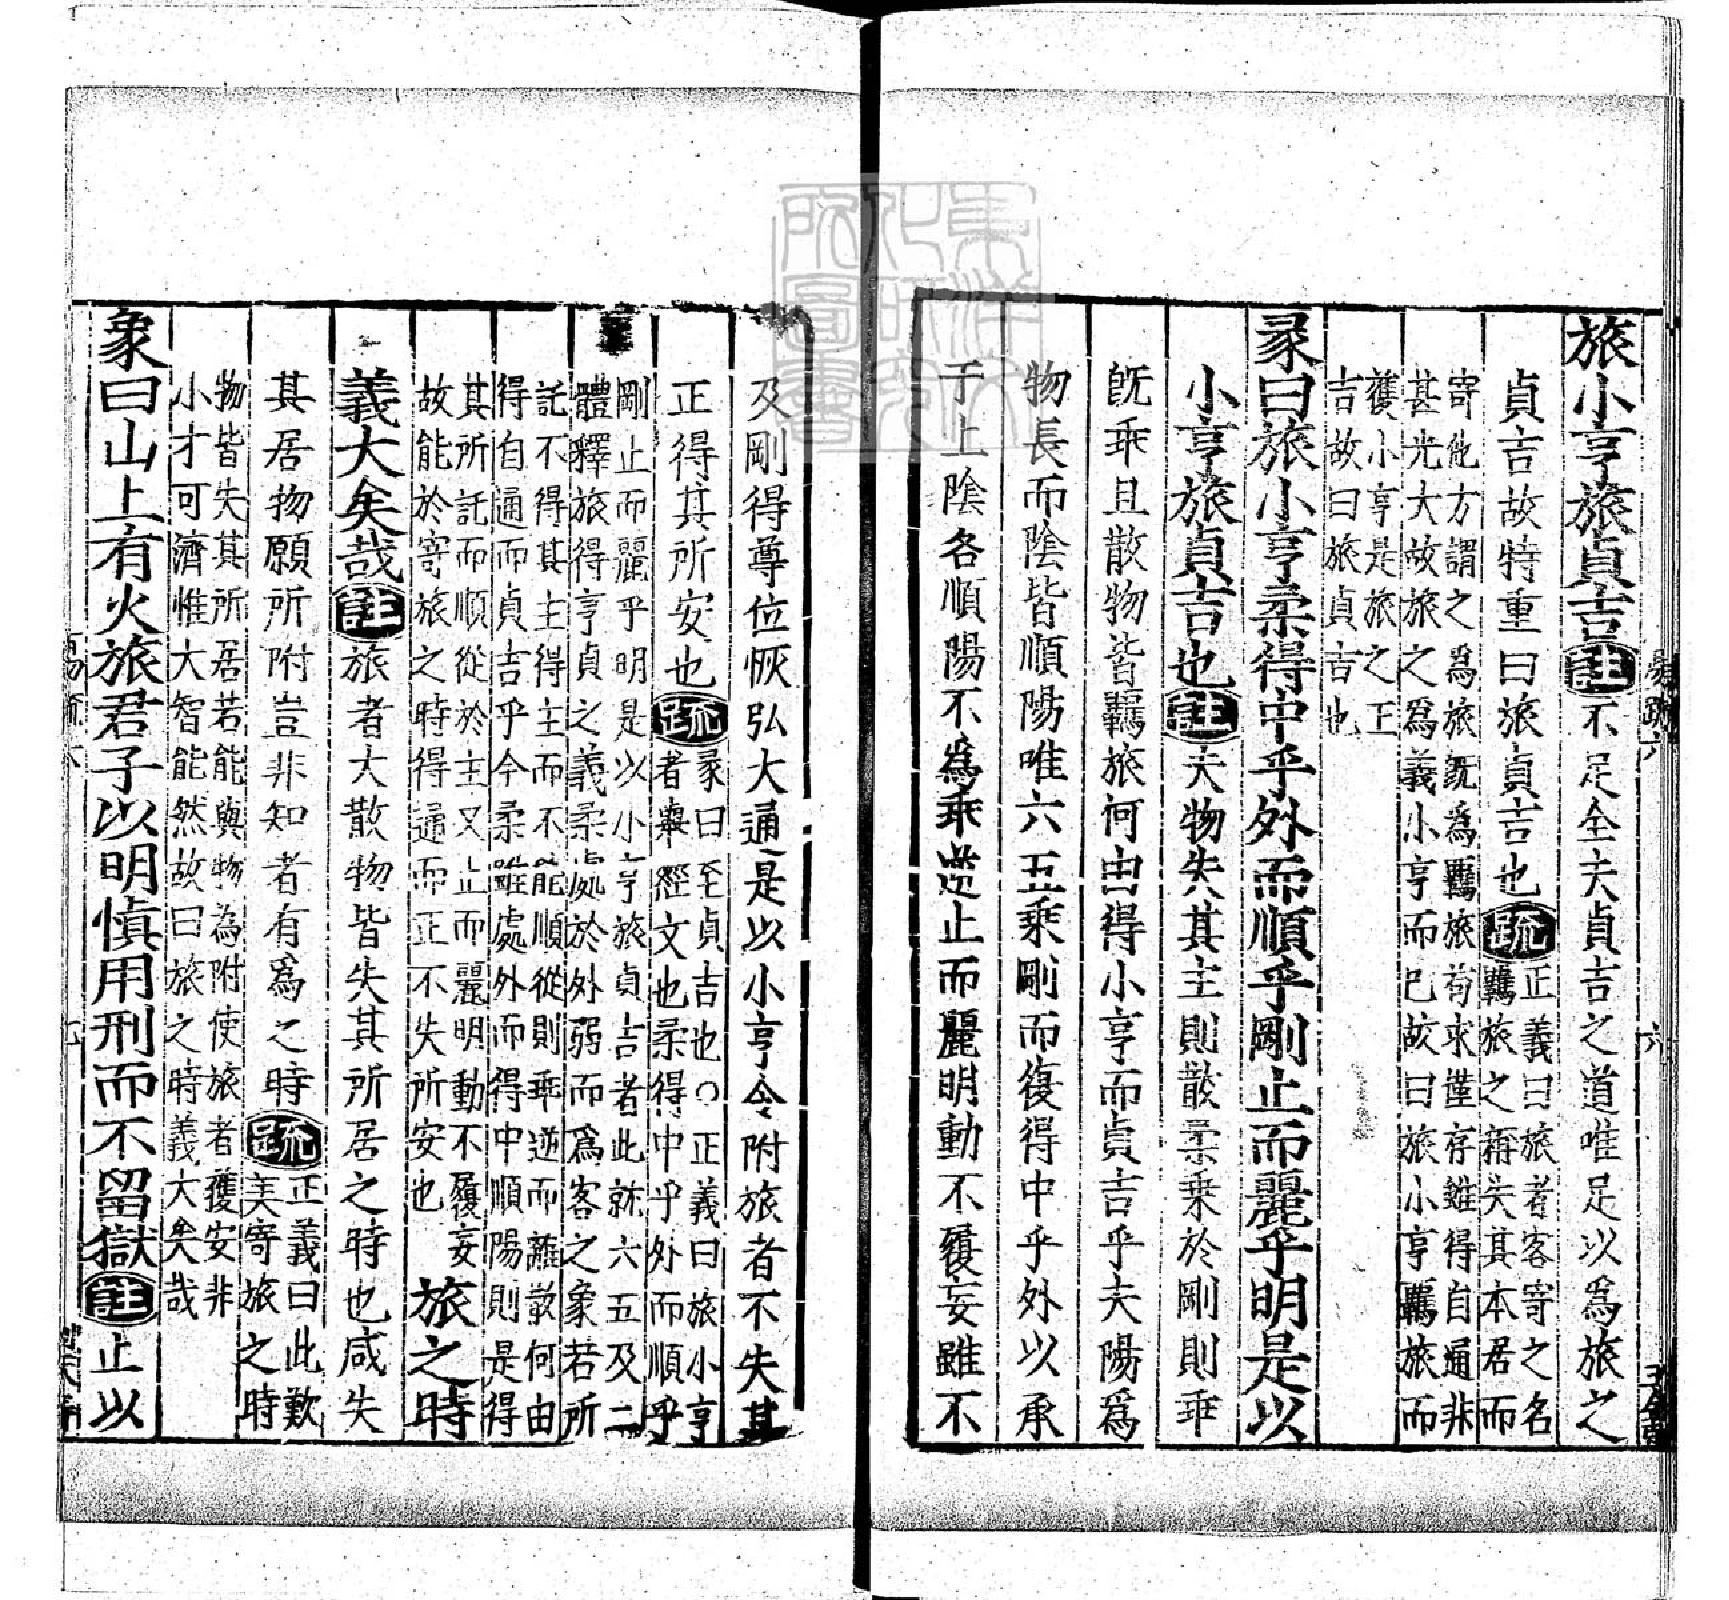 旅小亨旅貞吉註不足全夫貞吉之道唯足以爲旅之
貞吉故特重曰旅貞吉也䟽正義曰旅者客寄之名
羈旅之稱失其本居而
寄他方謂之爲旅旣爲羈旅苟求僅存雖得自通非
甚光大故旅之爲義小亨而已故曰旅小亨羈旅而
獲小亨是旅之正
吉故曰旅貞吉也
彖曰旅小亨柔得中乎外而順乎剛止而麗乎明是以
小亨旅貞吉也註夫物失其主則散柔乗於剛則乖
旣乖且散物皆羈旅何由得小亨而貞吉乎夫陽爲
物長而陰皆順陽唯六五乗剛而復得中乎外以承
于上陰各順陽不爲乖逆止而麗明動不履妄雖不
及剛得尊位恢弘大通是以小亨令附旅者不失其
正得其所安也䟽彖曰至貞吉也○正義曰旅小亨
者舉經文也柔得中乎外而順乎
剛止而麗乎明是以小亨旅貞吉者此就六五及二
體釋旅得亨貞之義柔處於外弱而爲客之象若所
託不得其主得主而不能順從則乖逆而離散何由
得自通而貞吉乎今柔雖處外而得中順陽則是得
其所託而順從於主又止而麗明動不履妄
故能於寄旅之時得通而正不失所安也
旅之時
義大矣哉註旅者大散物皆失其所居之時也咸失
其居物願所附豈非知者有爲之時䟽正義曰此歎
美寄旅之時
物皆失其所居若能與物為附使旅者獲安非
小才可濟惟大智能然故曰旅之時義大矣哉
象曰山上有火旅君子以明慎用刑而不留獄註止以